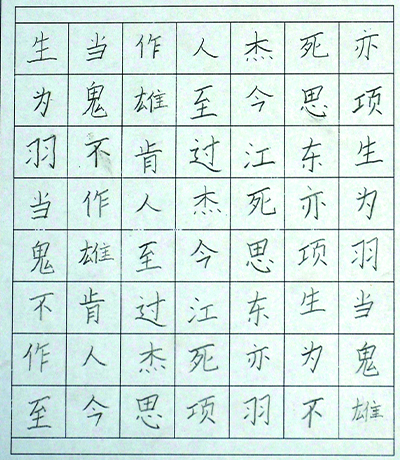 生当作人杰死亦
为鬼雄至今思项
羽不肯过江东生
当作人杰死亦为
鬼雄至今思项羽
不肯过江东生当
作人杰死亦为鬼
至今思项羽不雄